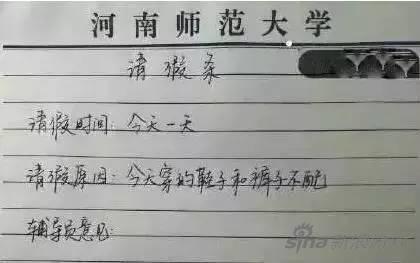 河南师范大学
请假条
请假时间：今天一天
请假原因：今天穿的鞋子和裤子不配
辅导员意见：
sina 新浪